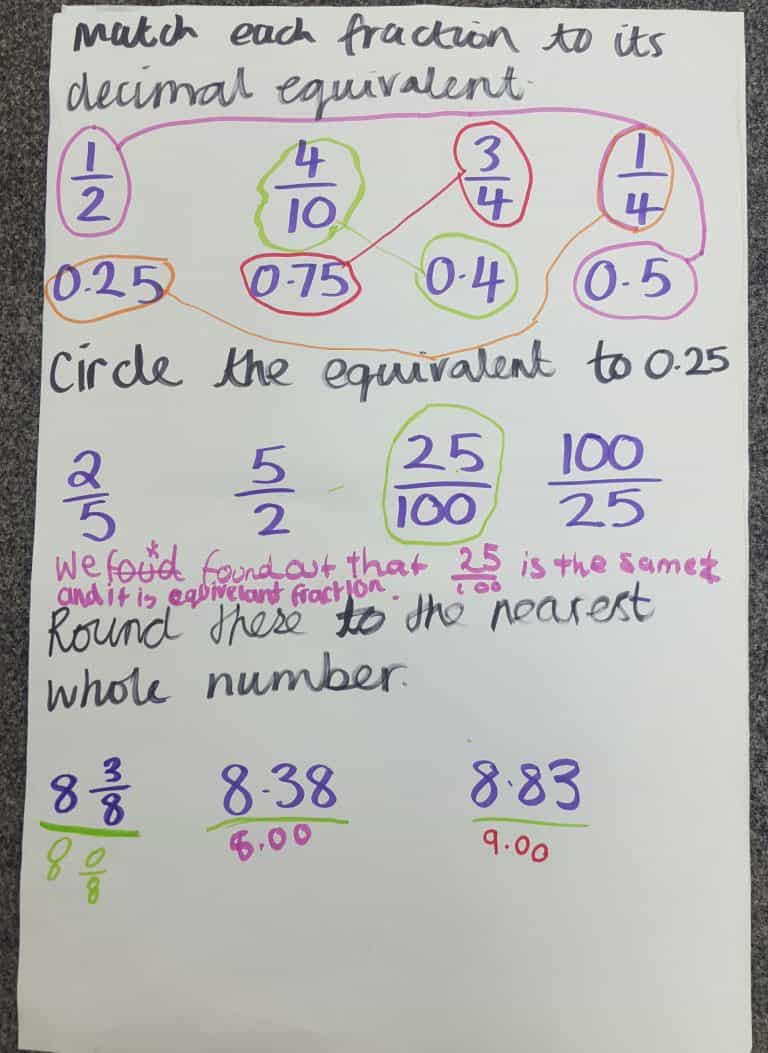 Match each fraction to its
decimal equivalent.
1/2 4/10 3/4 1/4
0.25 0.75 0.4 0.5
Circle the equivalent to 0.25
2/5 5/2 25/100 100/25
We foud* found out that 25/100 is the same
and it is equivelant fraction.
Round these to the nearest
whole number.
8 3/8 8.38 8.83
8 0/8 8.00 9.00